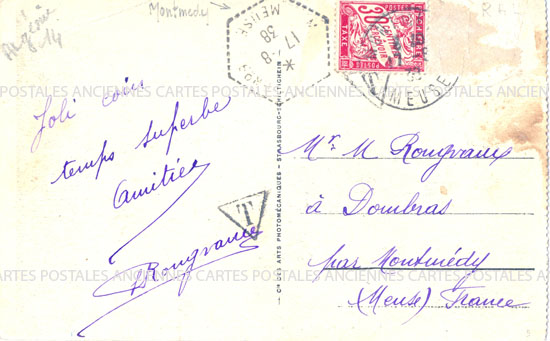 Algérie
14
Montmedy
Joli coin
temps superbe
Amitiés
Rougvaux
T
MEUSE
17
38
30
TAXE
MEUSE
POSTALES ANCIENNES CARTES POSTALES ANCIENNES CARTES POSTALES ANCIENNES
Cie DES ARTS PHOTOMÉCANIQUES - STRASBOURG-SCHILTIGHEIM
Mr. M Rougvaux
à Dombras
par Montmédy
(Meuse) France
CARTES POSTALES ANCIENNES CARTES POSTALES ANCIENNES CARTES